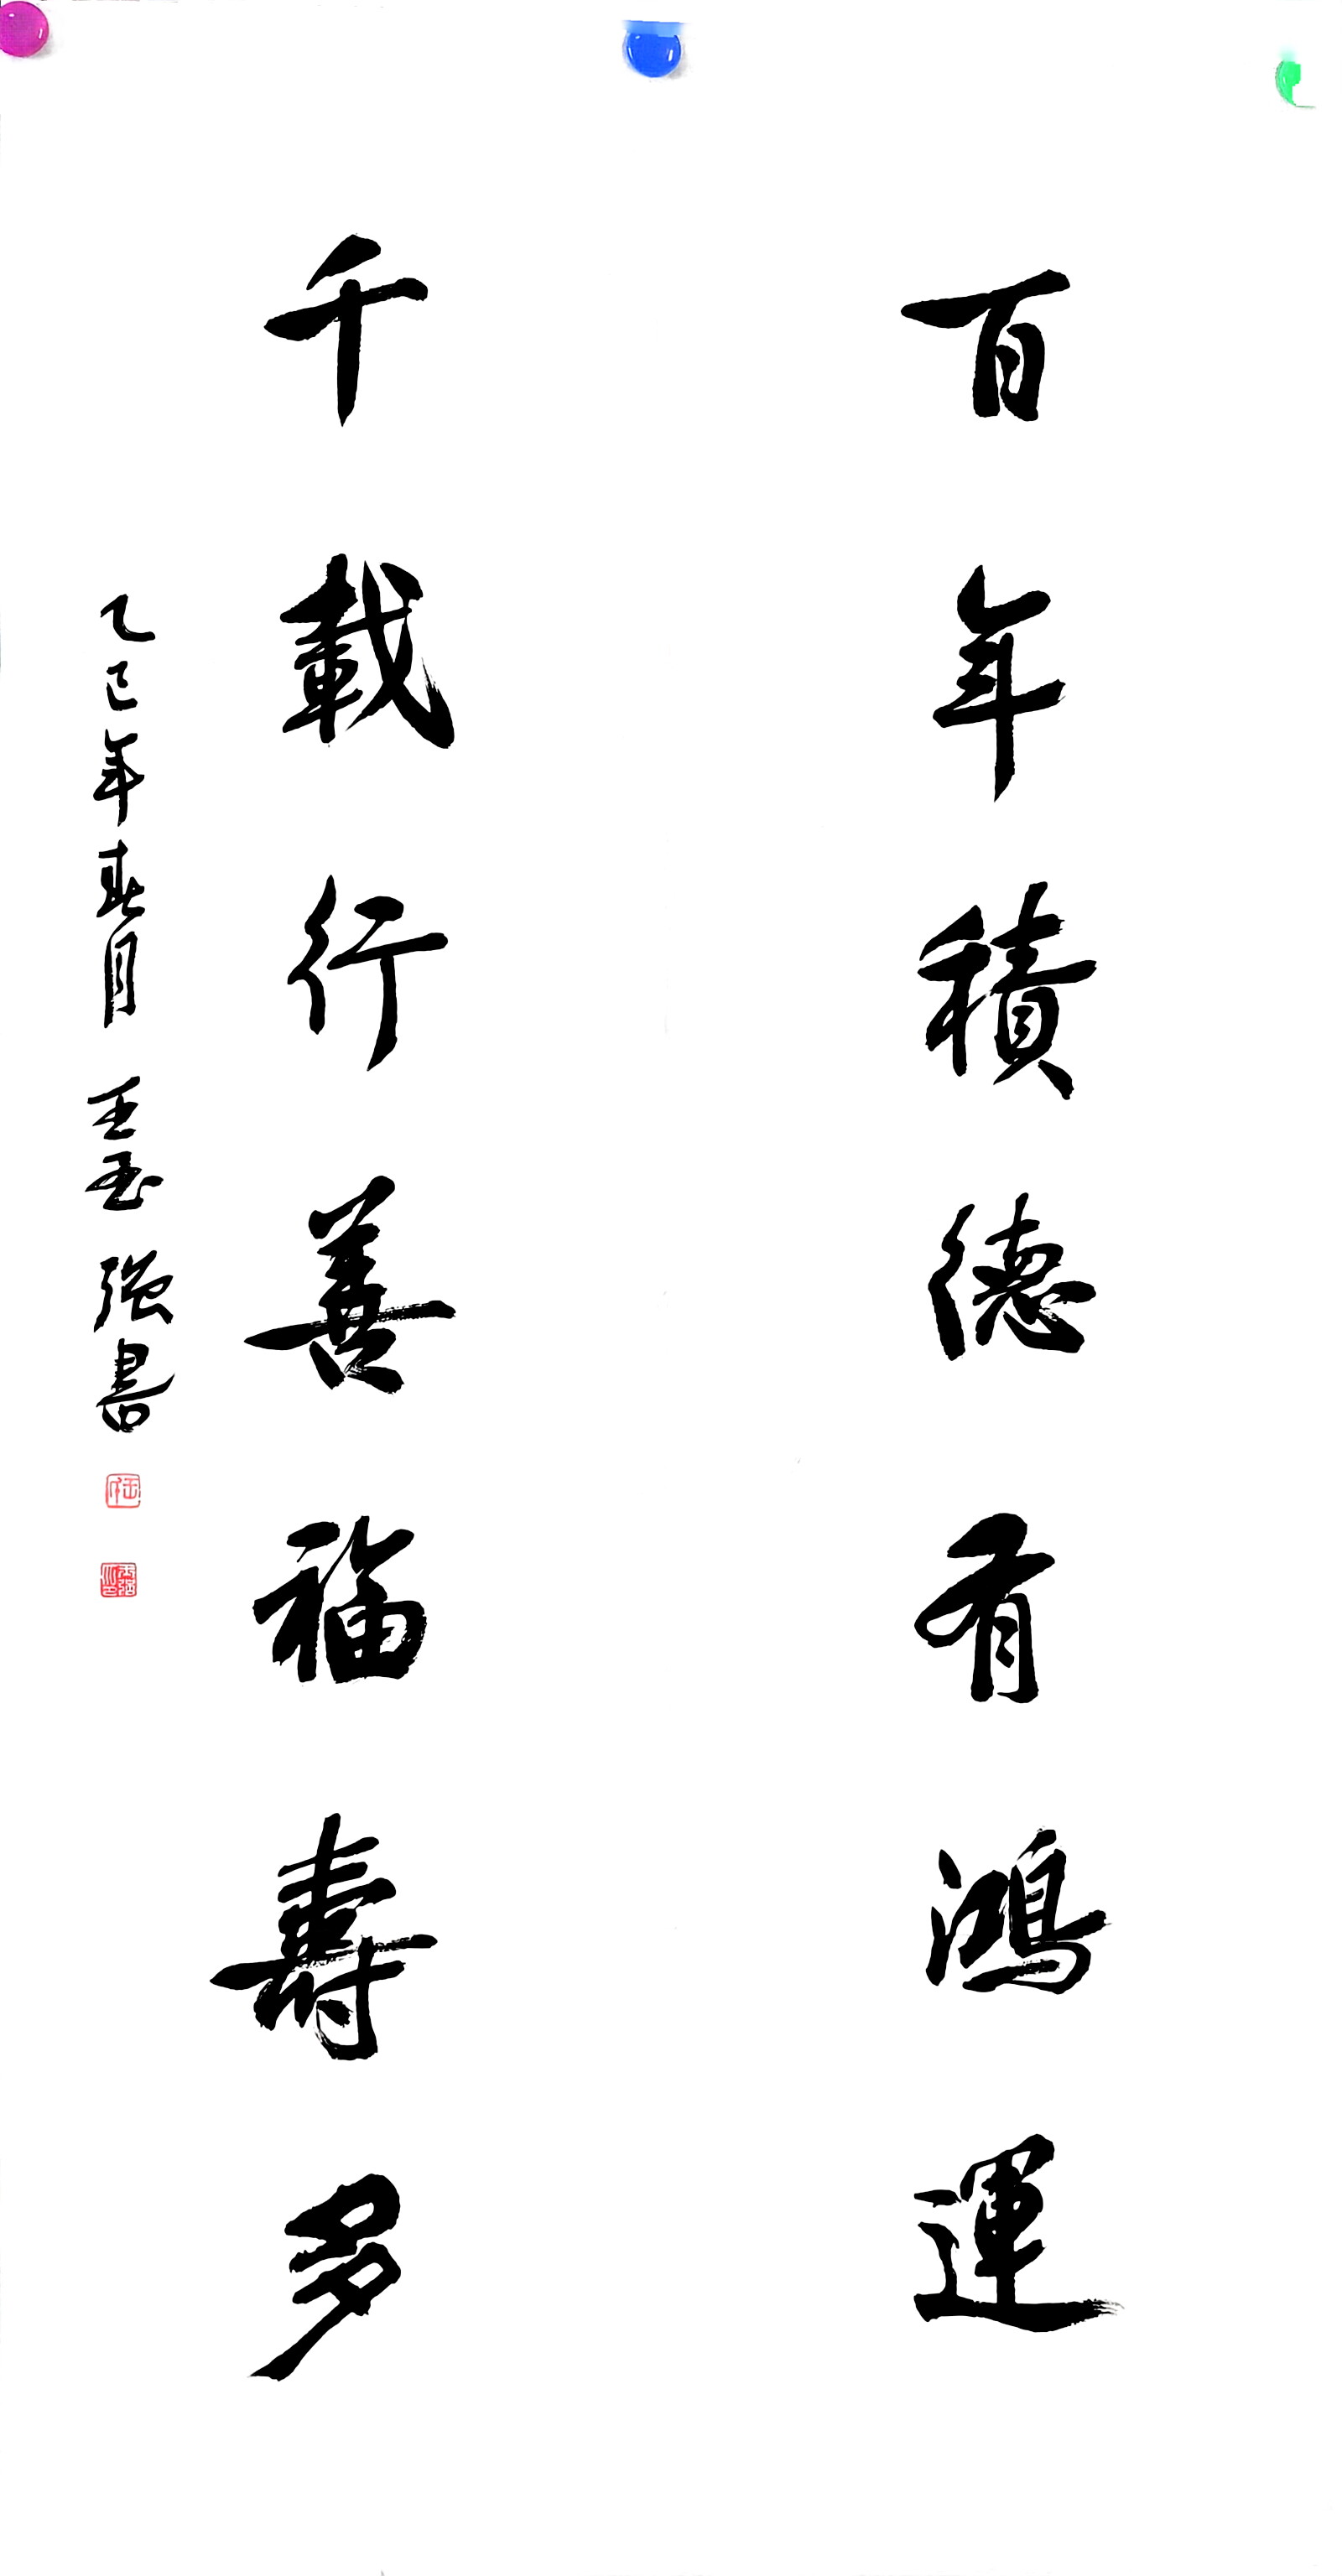 百年積德有鴻運
千載行善福壽多
乙巳年春月 王玉强書